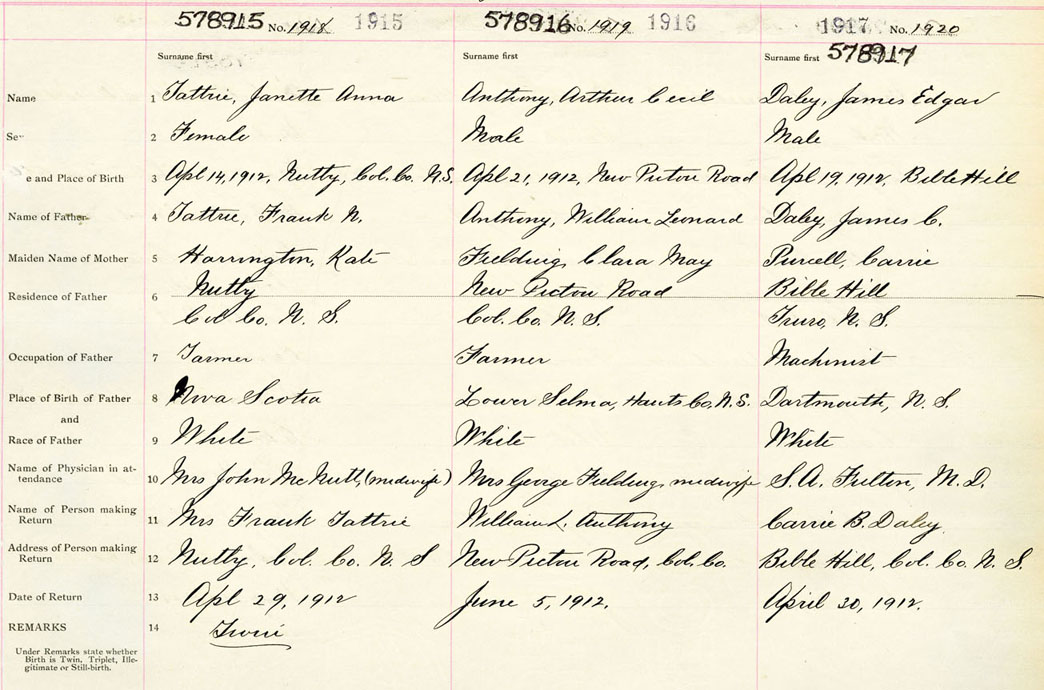 578915 No. 1918 1915 578916 No. 1919 1916 1917 No. 1920
Surname first Surname first Surname first 578917
Name 1 Tattrie, Janette Anna Anthony, Arthur Cecil Daley, James Edgar
2 Female Male Male
e and Place of Birth 3 Apl 14, 1912, Nutby, Col. Co. N.S. Apl 21, 1912, New Pictou Road Apl 19, 1912, Bible Hill
Name of Father 4 Tattrie, Frank N. Anthony, William Leonard Daley, James C.
Maiden Name of Mother 5 Harrington, Kate Fielding, Clara May Purcell, Carrie
Residence of Father 6 Nutby New Pictou Road Bible Hill
Col Co. N. S. Col. Co. N. S. Truro, N. S.
Occupation of Father 7 Farmer Farmer Machinist
Place of Birth of Father 8 Nova Scotia Lower Selma, Hants Co. N.S. Dartmouth, N. S.
and
Race of Father 9 White White White
Name of Physician in at-
tendance 10 Mrs John McNutt, (midwife) Mrs George Fielding, midwife S. A. Fulton, M. D.
Name of Person making
Return 11 Mrs Frank Tattrie William L. Anthony Carrie B. Daley
Address of Person making
Return 12 Nutby, Col. Co. N. S New Pictou Road, Col. Co. Bible Hill, Col. Co. N. S.
Date of Return 13 Apl 29, 1912 June 5, 1912. April 30, 1912.
REMARKS 14 Twin
Under Remarks state whether
Birth is Twin. Triplet, Ille-
gitimate or Still-birth.